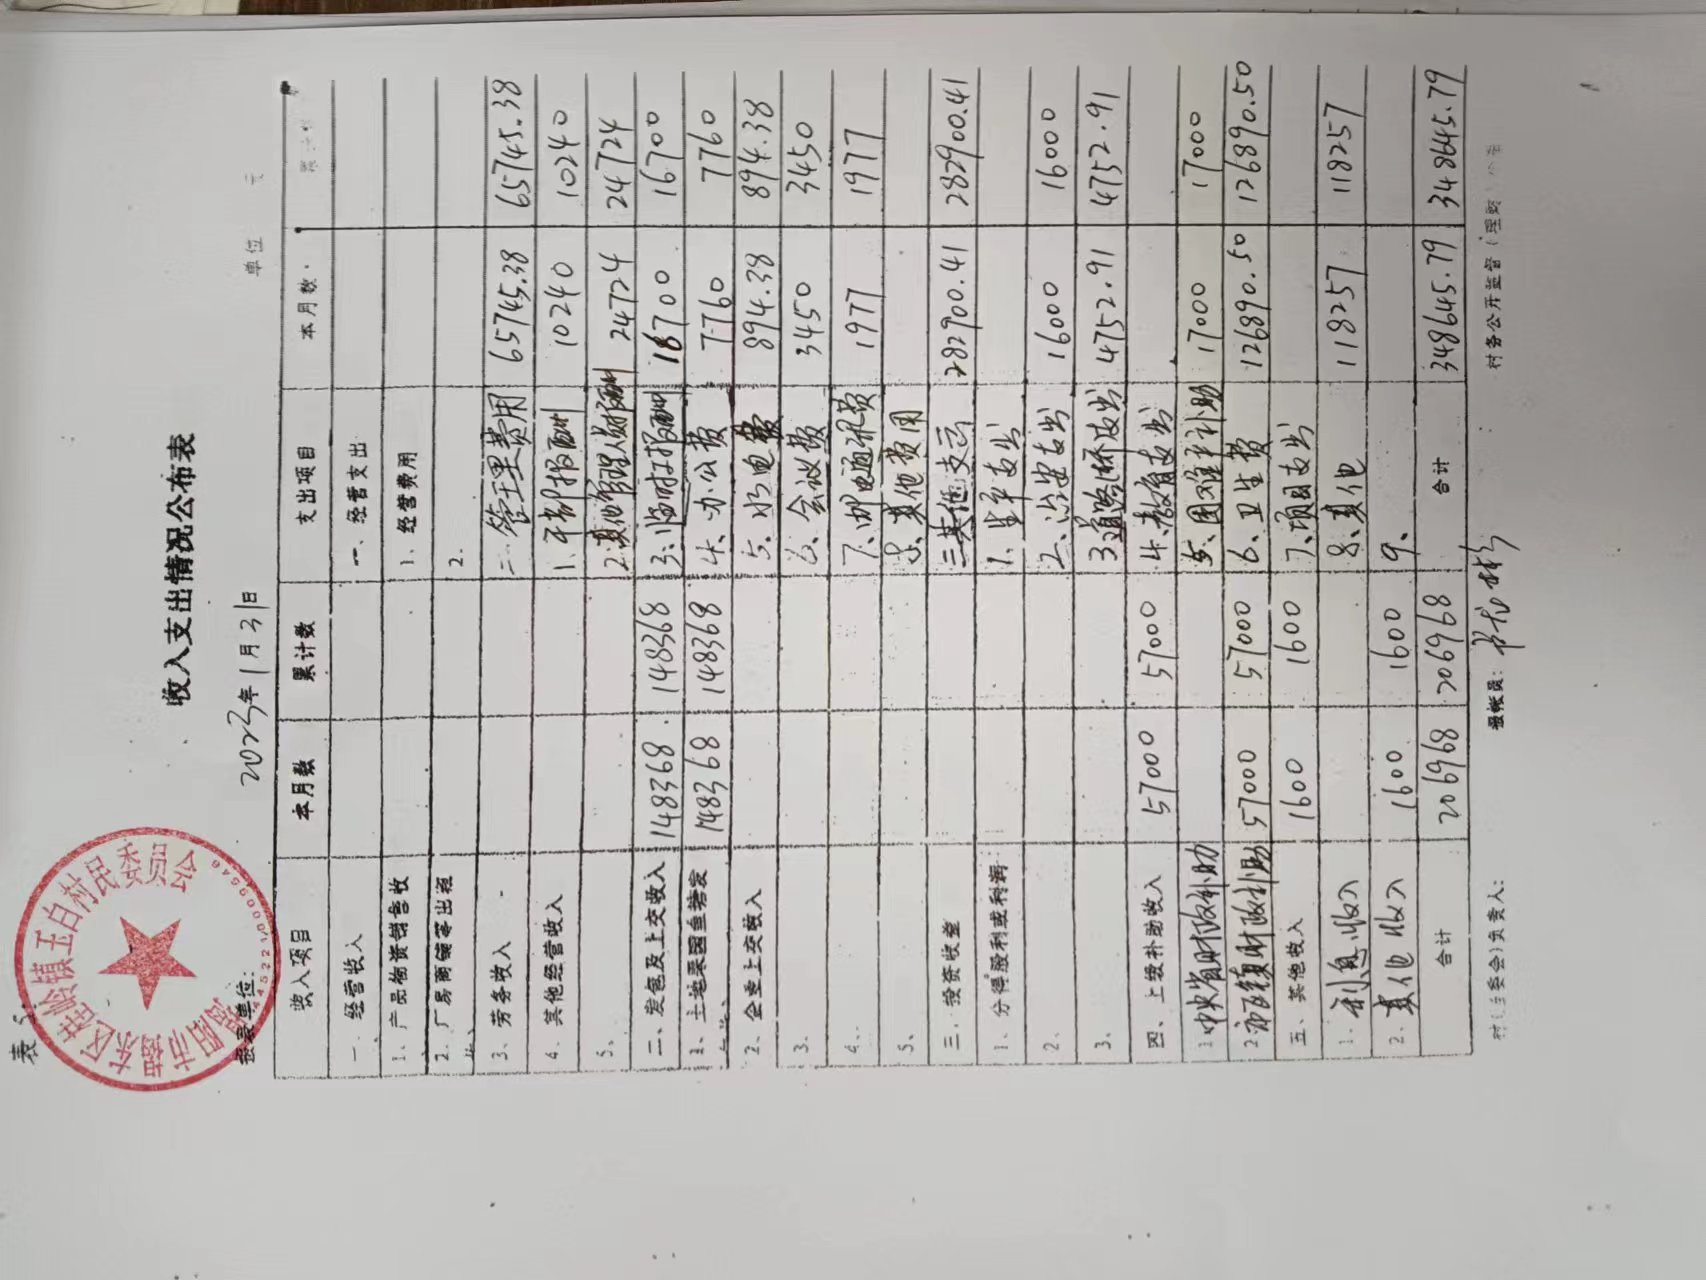 表
收入支出情况公布表
2023年1月31日
报表单位: 单位 元
揭阳市蓝城区桂岭镇玉白村民委员会
收入项目 本月数 累计数 支出项目 本月数
一. 经营收入 一. 经营支出
1、产品物资销售收 1. 经营费用
2. 厂房商铺等出租 2.
3、劳务收入 二管理费用 65745.38 65745.38
4. 其他经营收入 1、干部报酬 10240 10240
5. 2.其他管理人员报酬 24724 24724
二、发包及上交收入 148368 148368 3、临时工报酬 16700 16700
1、土地果园鱼塘发 148368 148368 4、办公费 7760 7760
2、企业上交收入 5、水电费 894.38 894.38
3. 6、会议费 3450 3450
4. 7、邮电通讯费 1977 1977
5. 8、其他费用
三. 投资收益 三其他支出 282900.41 282900.41
1、分得股利或利润 1、
2. 2、治安支出 16000 16000
3. 3道路桥支出 4752.91 4752.91
四、上级补助收入 57000 57000 4、教育支出
1中央省财政补助 5、困难补助 17000 17000
2市区镇财政补助 57000 57000 6、卫生费 126890.50 126890.50
五、其他收入 1600 1600 7、项目支出
1. 利息收入 8、其他 118257 118257
2. 其他收入 1600 1600 9、
合计 206968 206968 合计 348645.79 348645.79
村(居委会)负责人: 报账员: 村务公开监督(理财)小组